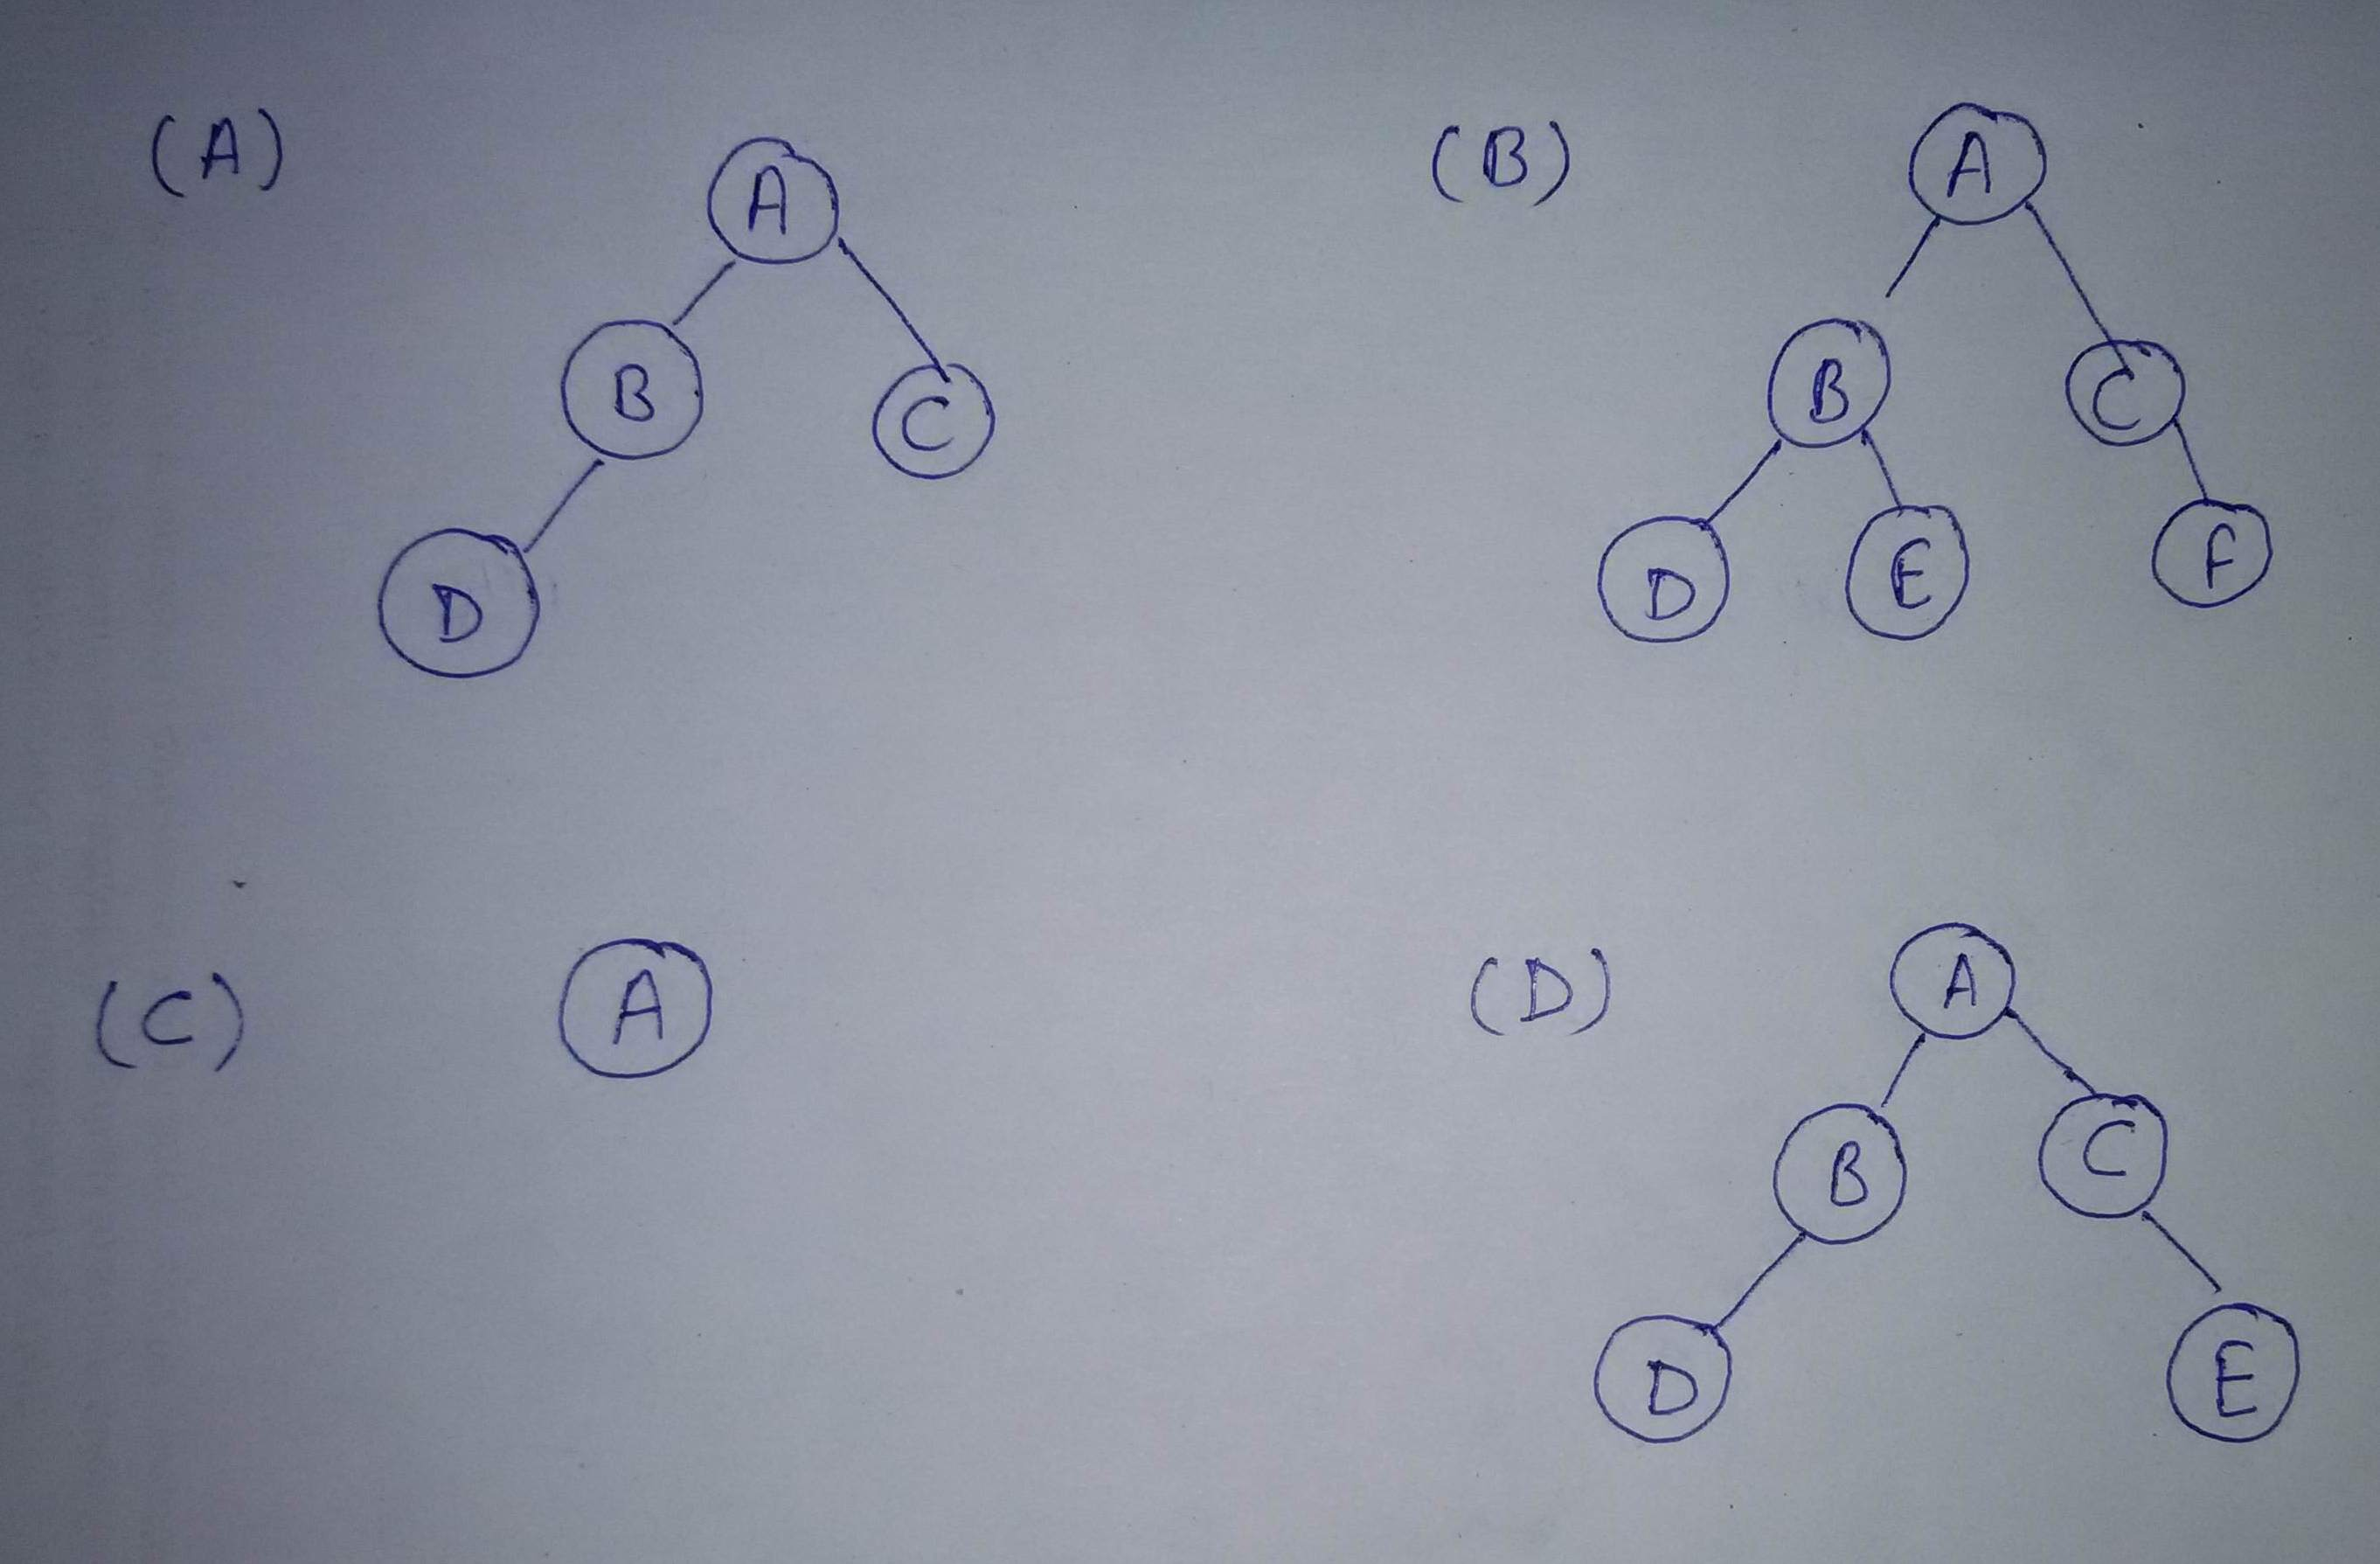 (A)
A
B
C
D
(B)
A
B
C
D
E
F
(C)
A
(D)
A
B
C
D
E